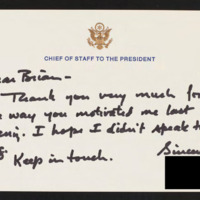 CHIEF OF STAFF TO THE PRESIDENT
Dear Brian—
Thank you very much for
the way you motivated me last
I hope I didn't speak
Keep in touch.